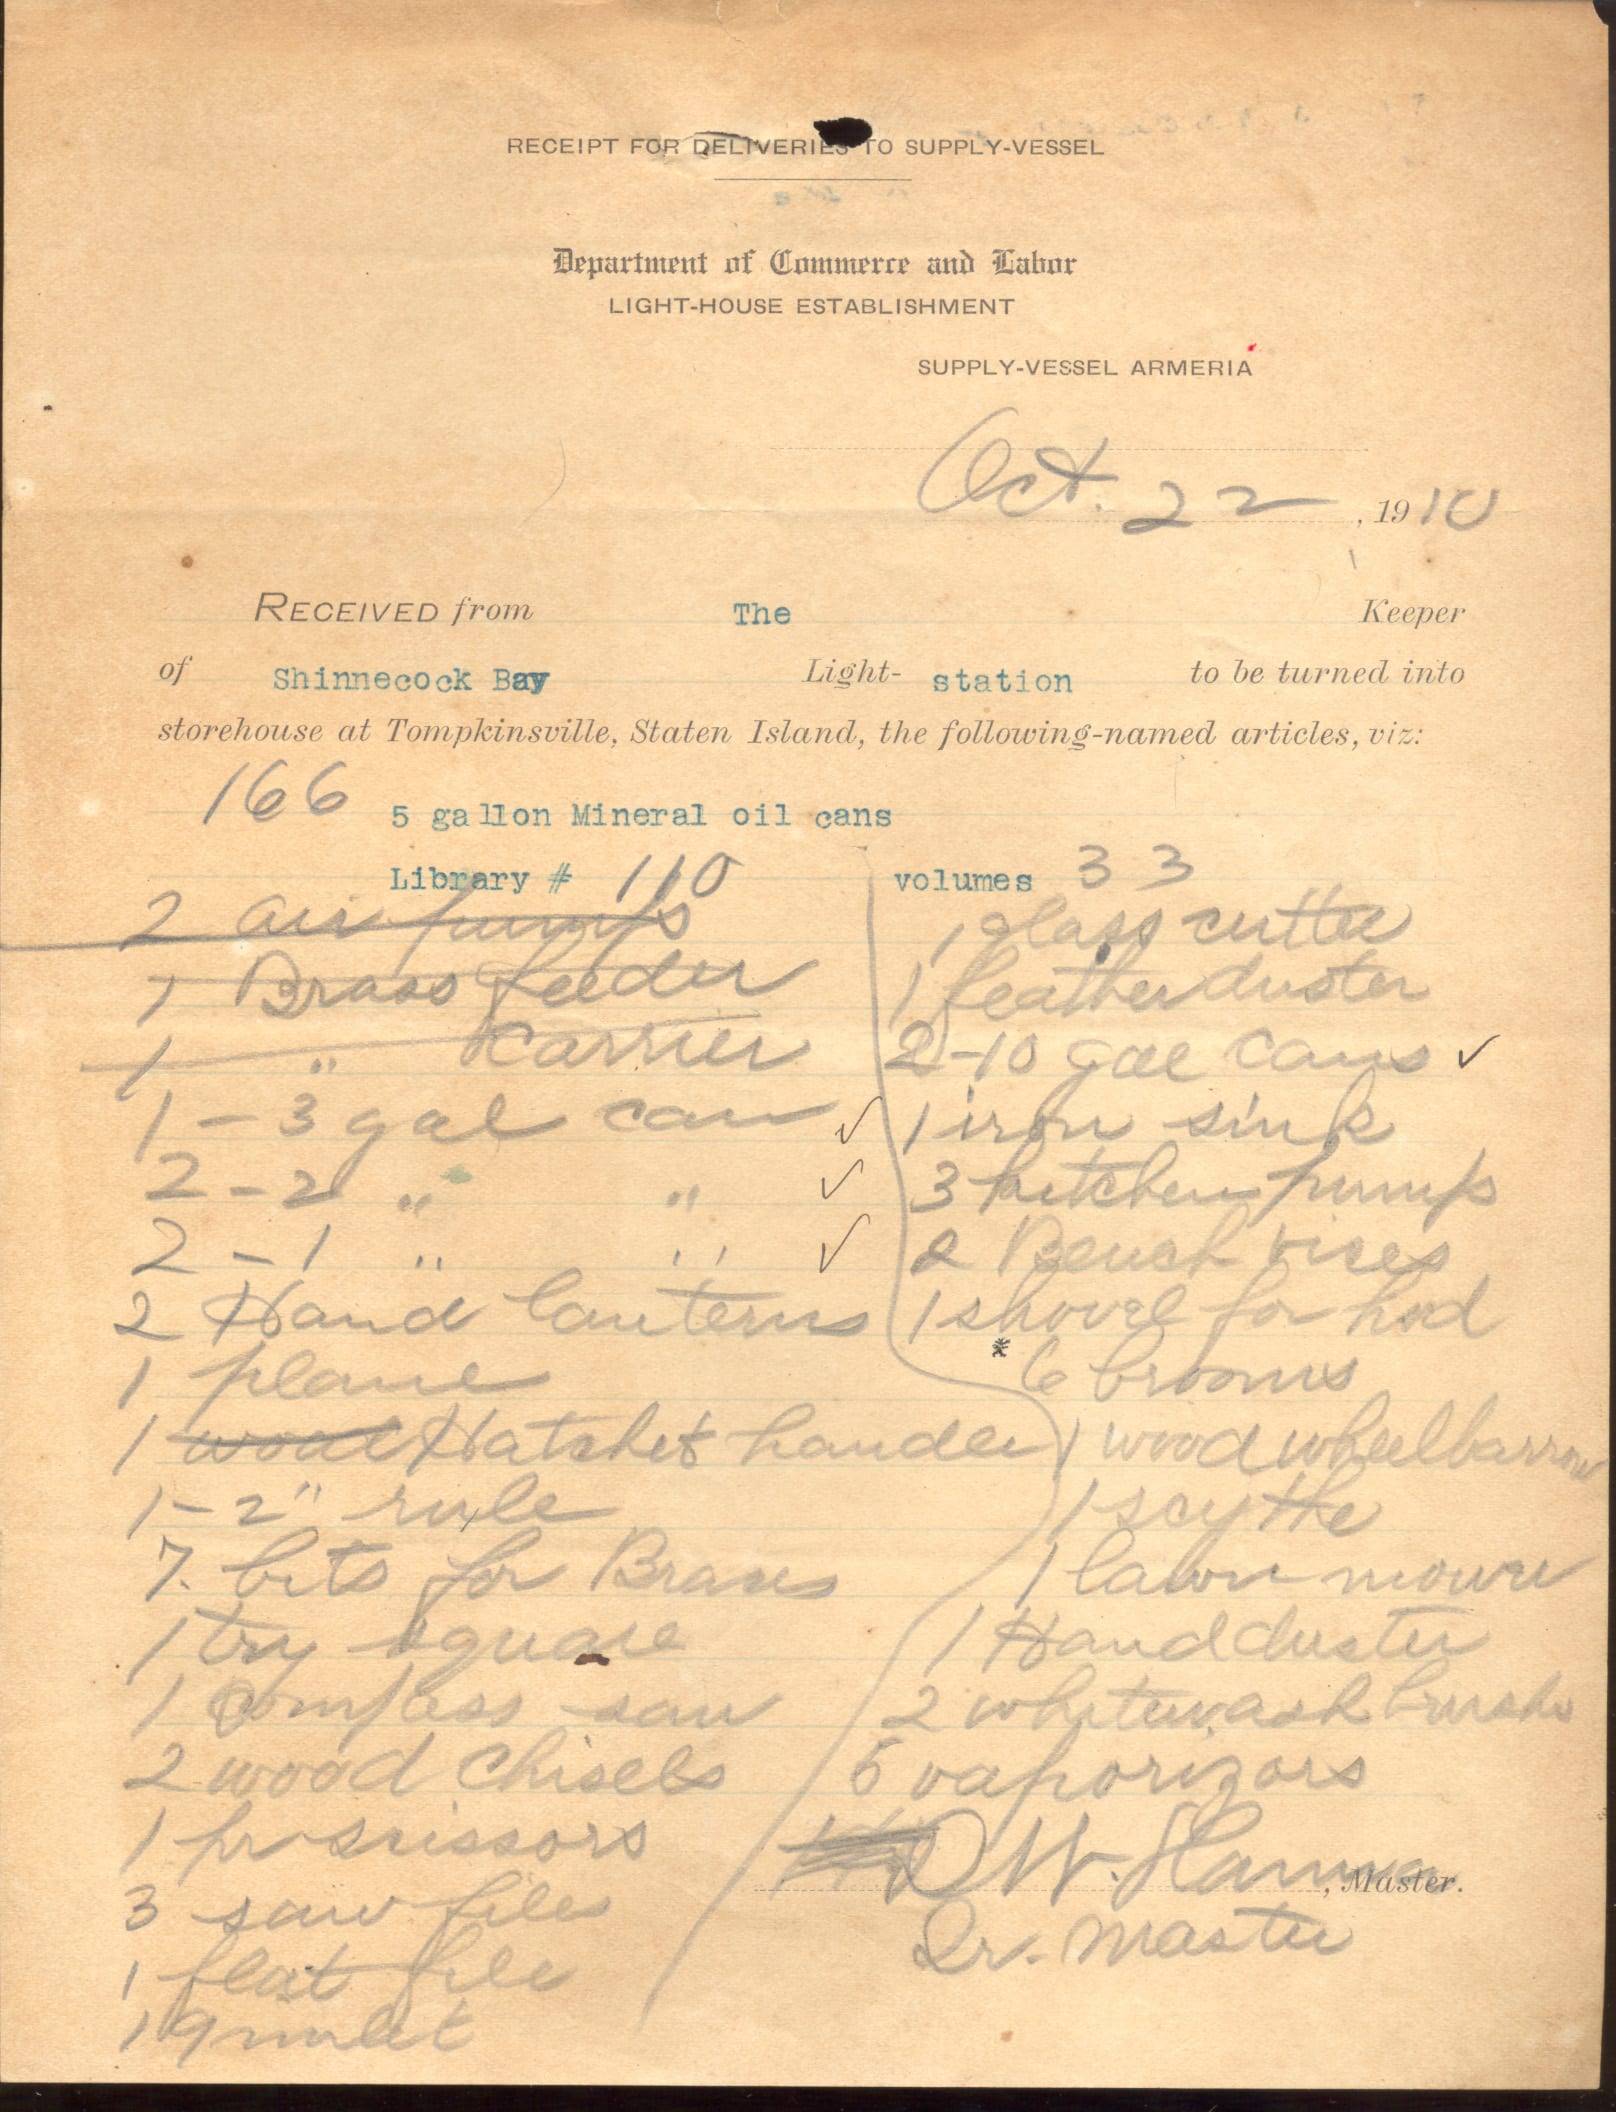 RECEIPT FOR DELIVERIES TO SUPPLY-VESSEL
Department of Commerce and Labor
LIGHT-HOUSE ESTABLISHMENT
SUPPLY-VESSEL ARMERIA
Oct. 22, 1910
RECEIVED from The Keeper
of Shinnecock Bay Light- station to be turned into
storehouse at Tompkinsville, Staten Island, the following-named articles, viz:
166 5 gallon Mineral oil cans
Library # 110 volumes 33
2 air pumps
1 Brass feeder
1 " carrier
1 - 3 gal can ✓
2 - 2 " " ✓
2 - 1 " " ✓
2 Hand lanterns
1 plane
1 Hatchet handle
1 - 2" rule
7. bits for Braces
1 try square
1 compass saw
2 wood chisels
1 pr scissors
3 saw files
1 flat file
1 gimlet
1 glass cutter
1 feather duster
2 - 10 gal cans ✓
1 iron sink
3 kitchen pumps
2 Bench vises
1 shovel for hod
* 6 brooms
1 wood wheelbarrow
1 scythe
1 lawn mower
1 Hand duster
2 whitewash brushs
5 vaporizors
W. , Master.
Qr. Master